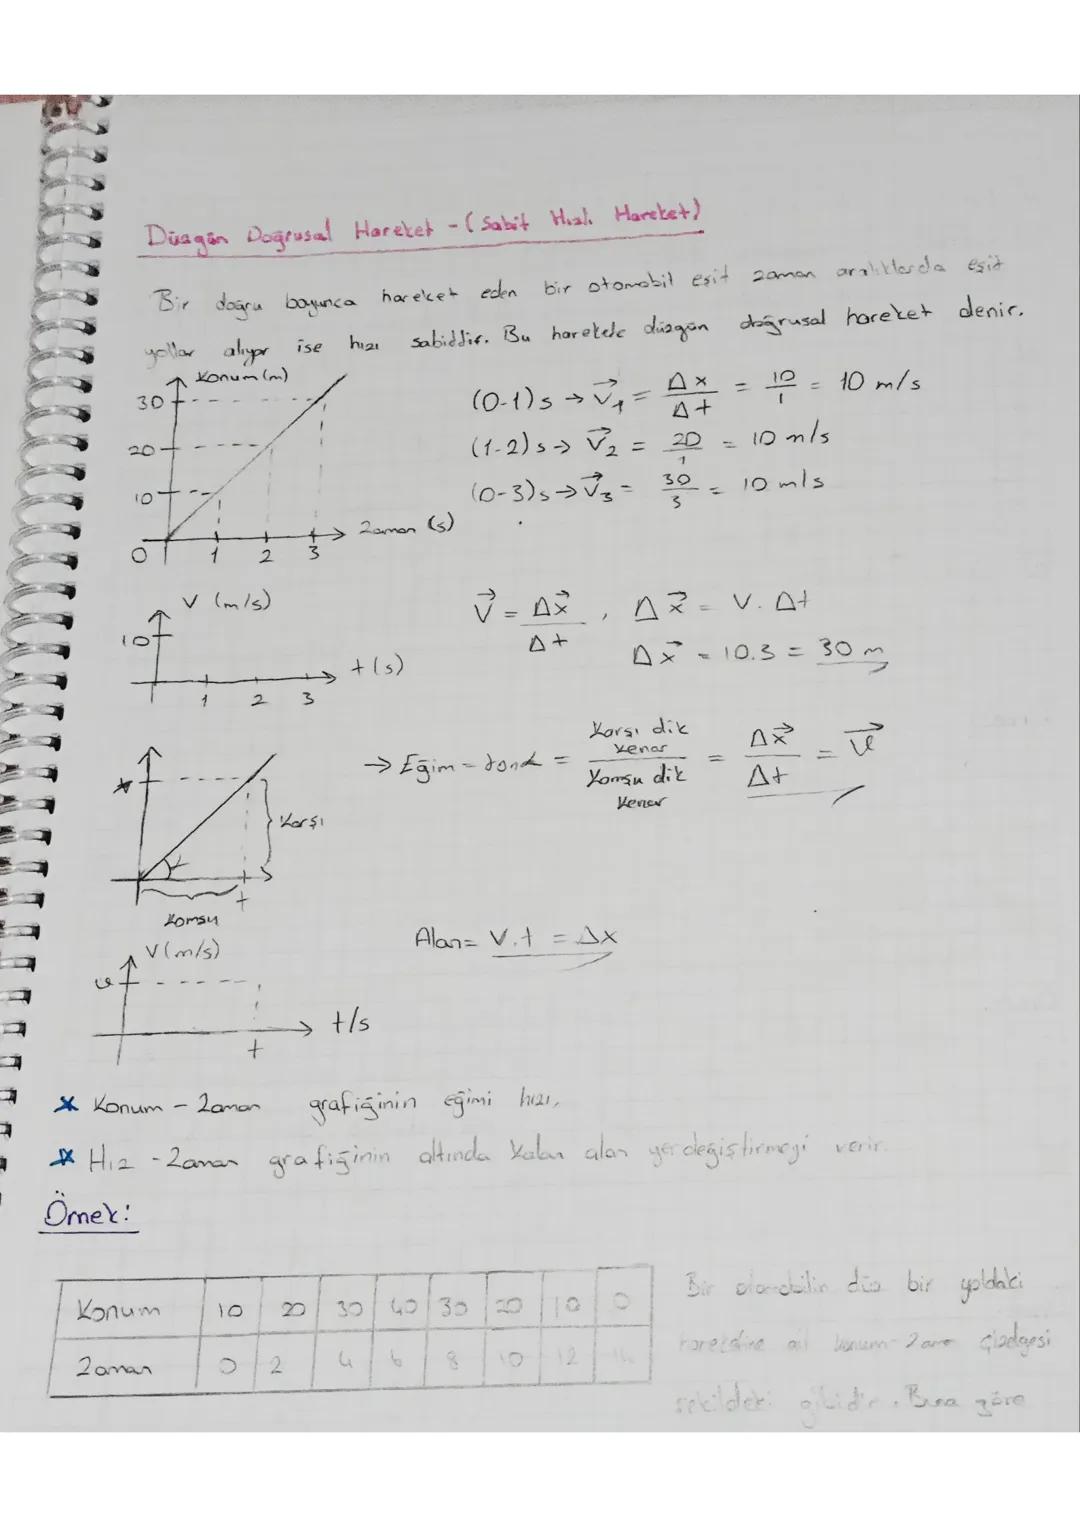 Düzgün Doğrusal Hareket - (Sabit Hızlı Hareket)
Bir doğru boyunca hareket eden bir otomobil eşit zaman aralıklarda eşit
yollar alıyor ise hızı sabiddir. Bu harekete düzgün doğrusal hareket denir.
Konum (m)
30
20
10
0 1 2 3
Zaman (s)
(0-1)s → V⃗₁ = Δx/Δt = 10/1 = 10 m/s
(1-2)s → V⃗₂ = 20/1 = 10 m/s
(0-3)s → V⃗₃ = 30/3 = 10 m/s
V (m/s)
10
1 2 3
t(s)
V⃗ = Δx⃗/Δt , Δx⃗ = V.Δt
Δx⃗ = 10.3 = 30 m
x
Karşı
Komşu
t
→ Eğim = tanα = Karşı dik kenar/Komşu dik kenar = Δx⃗/Δt = V⃗
V(m/s)
v
t
t/s
Alan = V.t = Δx
* Konum - Zaman grafiğinin eğimi hızı,
* Hız - Zaman grafiğinin altında kalan alan yer değiştirmeyi verir.
Örnek:
Konum 10 20 30 40 30 20 10 0
Zaman 0 2 4 6 8 10 12 14
Bir otomobilin düz bir yoldaki
hareketine ait konum-zaman çizelgesi
şekildeki gibidir. Buna göre